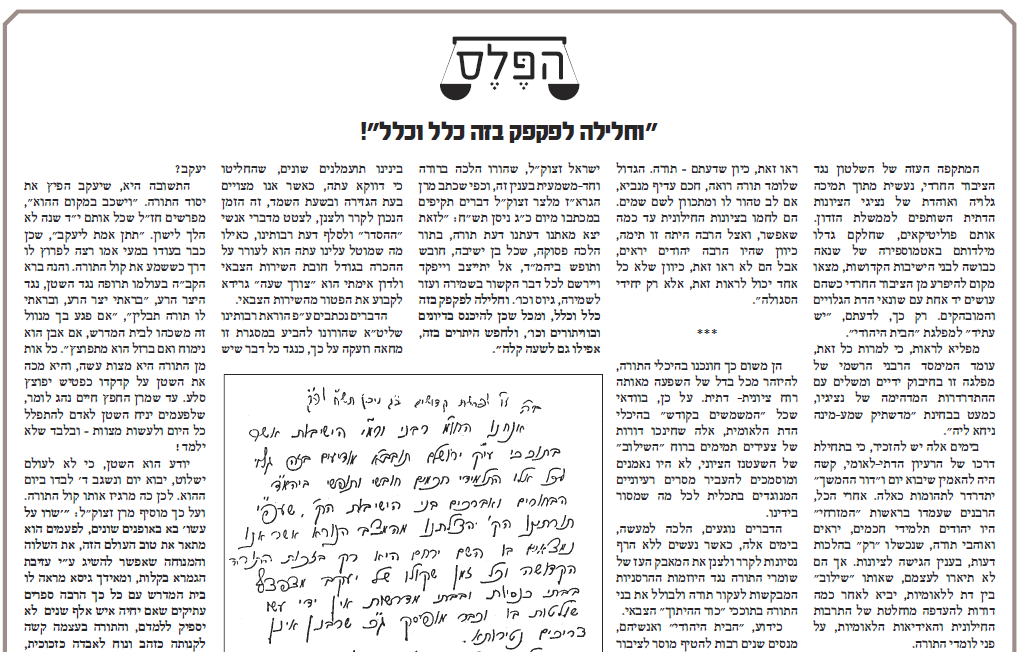 הפלס
"וחלילה לפקפק בזה כלל וכלל"!
המתקפה העזה של השלטון נגד
הציבור החרדי, נעשית מתוך תמיכה
גלויה ואוהדת של נציגי הציונות
הדתית השותפים לממשלת הזדון.
אותם פוליטיקאים, שחלקם גדלו
מילדותם באטמוספירה של שנאה
כבושה לבני הישיבות הקדושות, מצאו
מקום להיפרע מן הציבור החרדי כשהם
עושים יד אחת עם שונאי הדת הגלויים
והמובהקים. רק כך, לדעתם, "יש
עתיד" למפלגת "הבית היהודי".
מפליא לראות, כי למרות כל זאת,
עומד המימסד הרבני הרשמי של
מפלגה זו בחיבוק ידיים ומשלים עם
ההתדרדרות המדהימה של נציגיו,
כמעט בבחינת "מדשתיק שמע-מינה
ניחא ליה".
בימים אלה יש להזכיר, כי בתחילת
דרכו של הרעיון הדתי-לאומי, קשה
היה להאמין שיבוא יום ו"דור ההמשך"
יתדרדר לתהומות כאלה. אחרי הכל,
הרבנים שעמדו בראשות "המזרחי"
היו יהודים תלמידי חכמים, יראים
ואוהבי תורה, שנכשלו "רק" בהלכות
דעות, בענין הגישה לציונות. אך הם
לא תיארו לעצמם, שאותו "שילוב"
בין דת ללאומיות, יביא לאחר כמה
דורות להעדפה מוחלטת של התרבות
החילונית והאידיאות הלאומיות, על
פני לומדי התורה.
ראו זאת, כיון שדעתם - תורה. הגדול
שלומד תורה רואה, חכם עדיף מנביא,
אם לב טהור לו ומתכוון לשם שמים.
הם לחמו בציונות החילונית עד כמה
שאפשר, ואצל הרבה היתה זו תימה,
כיוון שהיו הרבה יהודים יראים,
אבל הם לא ראו זאת, כיוון שלא כל
אחד יכול לראות זאת, אלא רק יחידי
הסגולה".
***
הן משום כך חונכנו בהיכלי התורה,
להיזהר מכל בדל של השפעה מאותה
רוח ציונית- דתית. על כן, בוודאי
שכל "המשמשים בקודש" בהיכלי
הדת הלאומית, אלה שחינכו דורות
של צעירים תמימים ברוח "השילוב"
של השעטנז הציוני, לא היו נאמנים
ומוסמכים להעביר מסרים רעיוניים
המנוגדים בתכלית לכל מה שמסור
בידינו.
הדברים נוגעים, הלכה למעשה,
בימים אלה, כאשר נעשים ללא הרף
נסיונות לקרר ולצנן את המאבק העז של
שומרי התורה נגד היוזמות ההרסניות
המבקשות לעקור תורה ולבולל את בני
התורה בתוככי "כור ההיתוך" הצבאי.
כידוע, "הבית היהודי" ואנשיהם,
מנסים שנים רבות להטיף מוסר לציבור
ישראל זצוק"ל, שהורו הלכה ברורה
וחד-משמעית בענין זה, וכפי שכתב מרן
הגרא"ז מלצר זצוק"ל דברים תקיפים
במכתבו מיום כ"ג ניסן תש"ח: "לזאת
יצא מאתנו דעתנו דעת תורה, בתור
הלכה פסוקה, שכל בן ישיבה, חובש
ותופש ביהמ"ד, אל יתייצב וייפקד
ויירשם לכל דבר הקשור בשמירה ועזר
לשמירה, גיוס וכו'. וחלילה לפקפק בזה
כלל וכלל, ומכל שכן להיכנס בדיונים
ובוויתורים וכו', ולחפש היתרים בזה,
אפילו גם לשעה קלה".
בינינו תועמלנים שונים, שהחליטו
כי דווקא עתה, כאשר אנו מצויים
בעת הגזירה ובשעת השמד, זה הזמן
הנכון לקרר ולצנן, לצטט מדברי אנשי
"ההסדר" ולסלף דעת רבותינו, כאילו
מה שמוטל עלינו עתה הוא לעורר על
ההכרה בגודל חובת השירות הצבאי
ולדון אימתי הוא "צורך שעה" גרידא
לקבוע את הפטור מהשירות הצבאי.
הדברים נכתבים ע"פ הוראת רבותינו
שליט"א שהורונו להביע במסגרת זו
מחאה וזעקה על כך, כנגד כל דבר שיש
אנחנו החומ רבני ורמי הישיבות אשר
בתוככי עיק ירושלם תובב"א מודיעים בזה גלוי
לכל אלו התלמידי חכמים חובשי ותופשי ביהמ"ד
הבחורים ואברכים בני הישיבות הק'. שעפ"י
תורתנו הק' הצלתנו מהמצב הנורא אשר אנו
נמצאים בו השם ירחם היא רק בזכות התורה
הקדושה וכל זמן שקולו של יעקב מצפצף
בבתי כנסיות ובבתי מדרשות אין ידי עשו
שולטות בו וכבר מופיסק ג"כ שרבנן אינן
צריכים נטירותא.
יעקב?
התשובה היא, שיעקב הפיץ את
יסוד התורה. "וישכב במקום ההוא",
מפרשים חז"ל שכל אותם י"ד שנה לא
הלך לישון. "תתן אמת ליעקב", שכן
כבר בעודו במעי אמו רצה לפרוץ לו
דרך כששמע את קול התורה. והנה ברא
הקב"ה בעולמו תרופה נגד השטן, נגד
היצר הרע, "בראתי יצר הרע, ובראתי
לו תורה תבלין", "אם פגע בך מנוול
זה משכהו לבית המדרש, אם אבן הוא
נימוח ואם ברזל הוא מתפוצץ". כל אות
מן התורה היא מצות עשה, והיא מכה
את השטן על קדקדו כפטיש יפוצץ
סלע. עד שמרן החפץ חיים נהג לומר,
שלפעמים יניח השטן לאדם להתפלל
כל היום ולעשות מצוות - ובלבד שלא
ילמד!
יודע הוא השטן, כי לא לעולם
ישלוט, יבוא יום ונשגב ד' לבדו ביום
ההוא. לכן כה מרגיז אותו קול התורה.
ועל כך מוסיף מרן זצוק"ל: "'ישרו על
עשו' בא באופנים שונים, לפעמים הוא
מתאר את טוב העולם הזה, את השלוה
והמנוחה שאפשר להשיג ע"י עזיבת
הגמרא בקלות, ומאידך גיסא מראה לו
בית המדרש עם כל כך הרבה ספרים
עתיקים שאם יחיה איש אלף שנים לא
יספיק ללמדם, והתורה בעצמה קשה
לקנותה כזהב ונוח לאבדה כזכוכית,